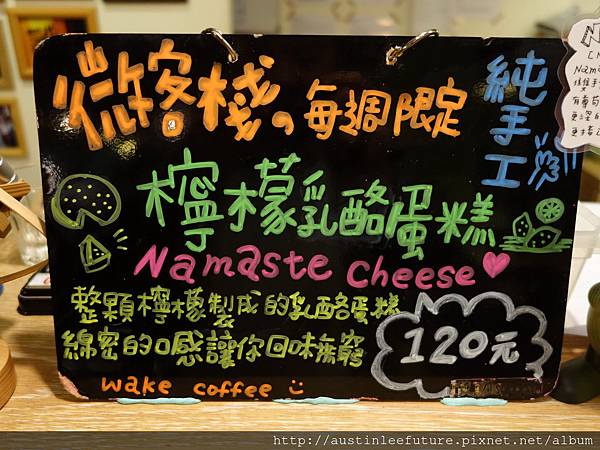 微客棧の每週限定
純手工
檸檬乳酪蛋糕
Namaste cheese
整顆檸檬製成的乳酪蛋糕
綿密的口感讓你回味無窮
120元
wake coffee
http://austinleefuture.pixnet.net/album